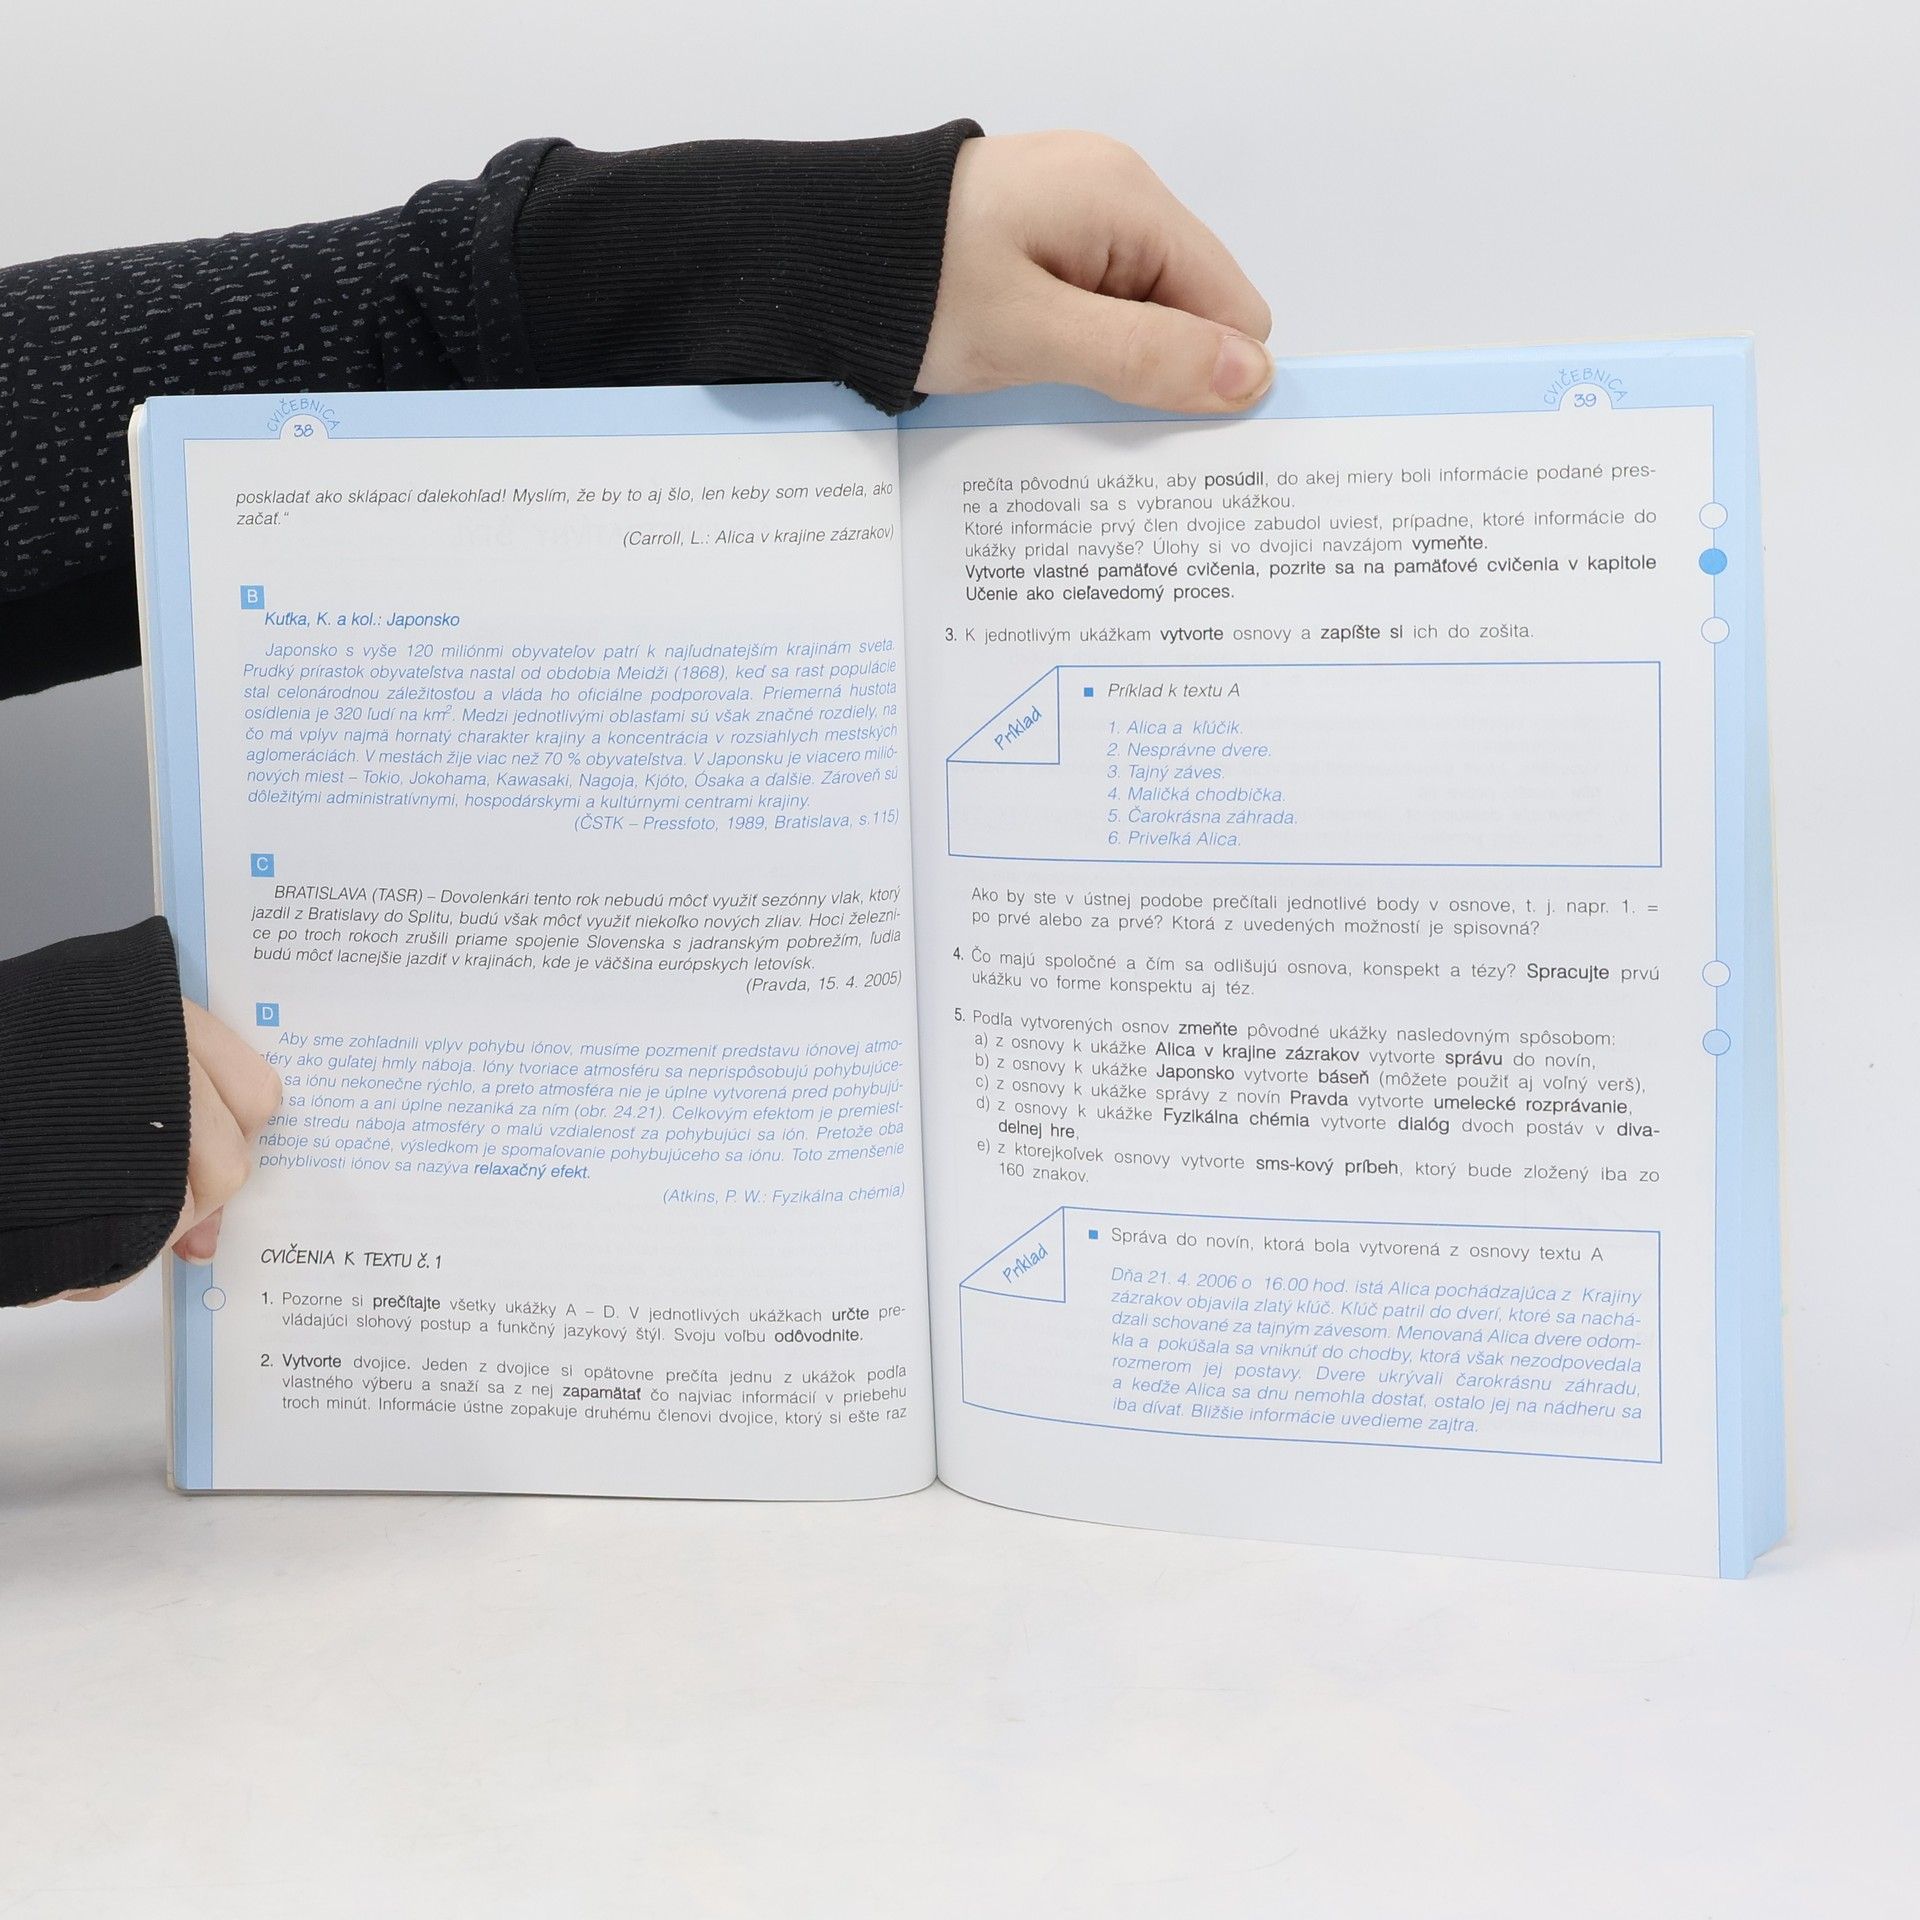 CVIČEBNICA
38
poskladať ako sklápací ďalekohľad! Myslím, že by to aj šlo, len keby som vedela, ako
začať."
(Carroll, L.: Alica v krajine zázrakov)
B
Kuťka, K. a kol.: Japonsko
Japonsko s vyše 120 miliónmi obyvateľov patrí k najľudnatejším krajinám sveta.
Prudký prírastok obyvateľstva nastal od obdobia Meidži (1868), keď sa rast populácie
stal celonárodnou záležitosťou a vláda ho oficiálne podporovala. Priemerná hustota
osídlenia je 320 ľudí na km². Medzi jednotlivými oblasťami sú však značné rozdiely, na
čo má vplyv najmä hornatý charakter krajiny a koncentrácia v rozsiahlych mestských
aglomeráciách. V mestách žije viac než 70 % obyvateľstva. V Japonsku je viacero milió-
nových miest – Tokio, Jokohama, Kawasaki, Nagoja, Kjóto, Ósaka a ďalšie. Zároveň sú
dôležitými administratívnymi, hospodárskymi a kultúrnymi centrami krajiny.
(ČSTK – Pressfoto, 1989, Bratislava, s.115)
C
BRATISLAVA (TASR) – Dovolenkári tento rok nebudú môcť využiť sezónny vlak, ktorý
jazdil z Bratislavy do Splitu, budú však môcť využiť niekoľko nových zliav. Hoci železni-
ce po troch rokoch zrušili priame spojenie Slovenska s jadranským pobrežím, ľudia
budú môcť lacnejšie jazdiť v krajinách, kde je väčšina európskych letovísk.
(Pravda, 15. 4. 2005)
D
Aby sme zohľadnili vplyv pohybu iónov, musíme pozmeniť predstavu iónovej atmo-
féry ako guľatej hmly náboja. Ióny tvoriace atmosféru sa neprispôsobujú pohybujúce-
sa iónu nekonečne rýchlo, a preto atmosféra nie je úplne vytvorená pred pohybujú-
sa iónom a ani úplne nezaniká za ním (obr. 24.21). Celkovým efektom je premiest-
enie stredu náboja atmosféry o malú vzdialenosť za pohybujúci sa ión. Pretože oba
náboje sú opačné, výsledkom je spomaľovanie pohybujúceho sa iónu. Toto zmenšenie
pohyblivosti iónov sa nazýva relaxačný efekt.
(Atkins, P. W.: Fyzikálna chémia)
CVIČENIA K TEXTU č. 1
1. Pozorne si prečítajte všetky ukážky A – D. V jednotlivých ukážkach určte pre-
vládajúci slohový postup a funkčný jazykový štýl. Svoju voľbu odôvodnite.
2. Vytvorte dvojice. Jeden z dvojice si opätovne prečíta jednu z ukážok podľa
vlastného výberu a snaží sa z nej zapamätať čo najviac informácií v priebehu
troch minút. Informácie ústne zopakuje druhému členovi dvojice, ktorý si ešte raz
CVIČEBNICA
39
prečíta pôvodnú ukážku, aby posúdil, do akej miery boli informácie podané pres-
ne a zhodovali sa s vybranou ukážkou.
Ktoré informácie prvý člen dvojice zabudol uviesť, prípadne, ktoré informácie do
ukážky pridal navyše? Úlohy si vo dvojici navzájom vymeňte.
Vytvorte vlastné pamäťové cvičenia, pozrite sa na pamäťové cvičenia v kapitole
Učenie ako cieľavedomý proces.
3. K jednotlivým ukážkam vytvorte osnovy a zapíšte si ich do zošita.
Príklad
■ Príklad k textu A
1. Alica a kľúčik.
2. Nesprávne dvere.
3. Tajný záves.
4. Maličká chodbička.
5. Čarokrásna záhrada.
6. Priveľká Alica.
Ako by ste v ústnej podobe prečítali jednotlivé body v osnove, t. j. napr. 1. =
po prvé alebo za prvé? Ktorá z uvedených možností je spisovná?
4. Čo majú spoločné a čím sa odlišujú osnova, konspekt a tézy? Spracujte prvú
ukážku vo forme konspektu aj téz.
5. Podľa vytvorených osnov zmeňte pôvodné ukážky nasledovným spôsobom:
a) z osnovy k ukážke Alica v krajine zázrakov vytvorte správu do novín,
b) z osnovy k ukážke Japonsko vytvorte báseň (môžete použiť aj voľný verš),
c) z osnovy k ukážke správy z novín Pravda vytvorte umelecké rozprávanie,
d) z osnovy k ukážke Fyzikálna chémia vytvorte dialóg dvoch postáv v diva-
delnej hre,
e) z ktorejkoľvek osnovy vytvorte sms-kový príbeh, ktorý bude zložený iba zo
160 znakov.
Príklad
■ Správa do novín, ktorá bola vytvorená z osnovy textu A
Dňa 21. 4. 2006 o 16.00 hod. istá Alica pochádzajúca z Krajiny
zázrakov objavila zlatý kľúč. Kľúč patril do dverí, ktoré sa nachá-
dzali schované za tajným závesom. Menovaná Alica dvere odom-
kla a pokúšala sa vniknúť do chodby, ktorá však nezodpovedala
rozmerom jej postavy. Dvere ukrývali čarokrásnu záhradu,
a keďže Alica sa dnu nemohla dostať, ostalo jej na nádheru sa
iba dívať. Bližšie informácie uvedieme zajtra.